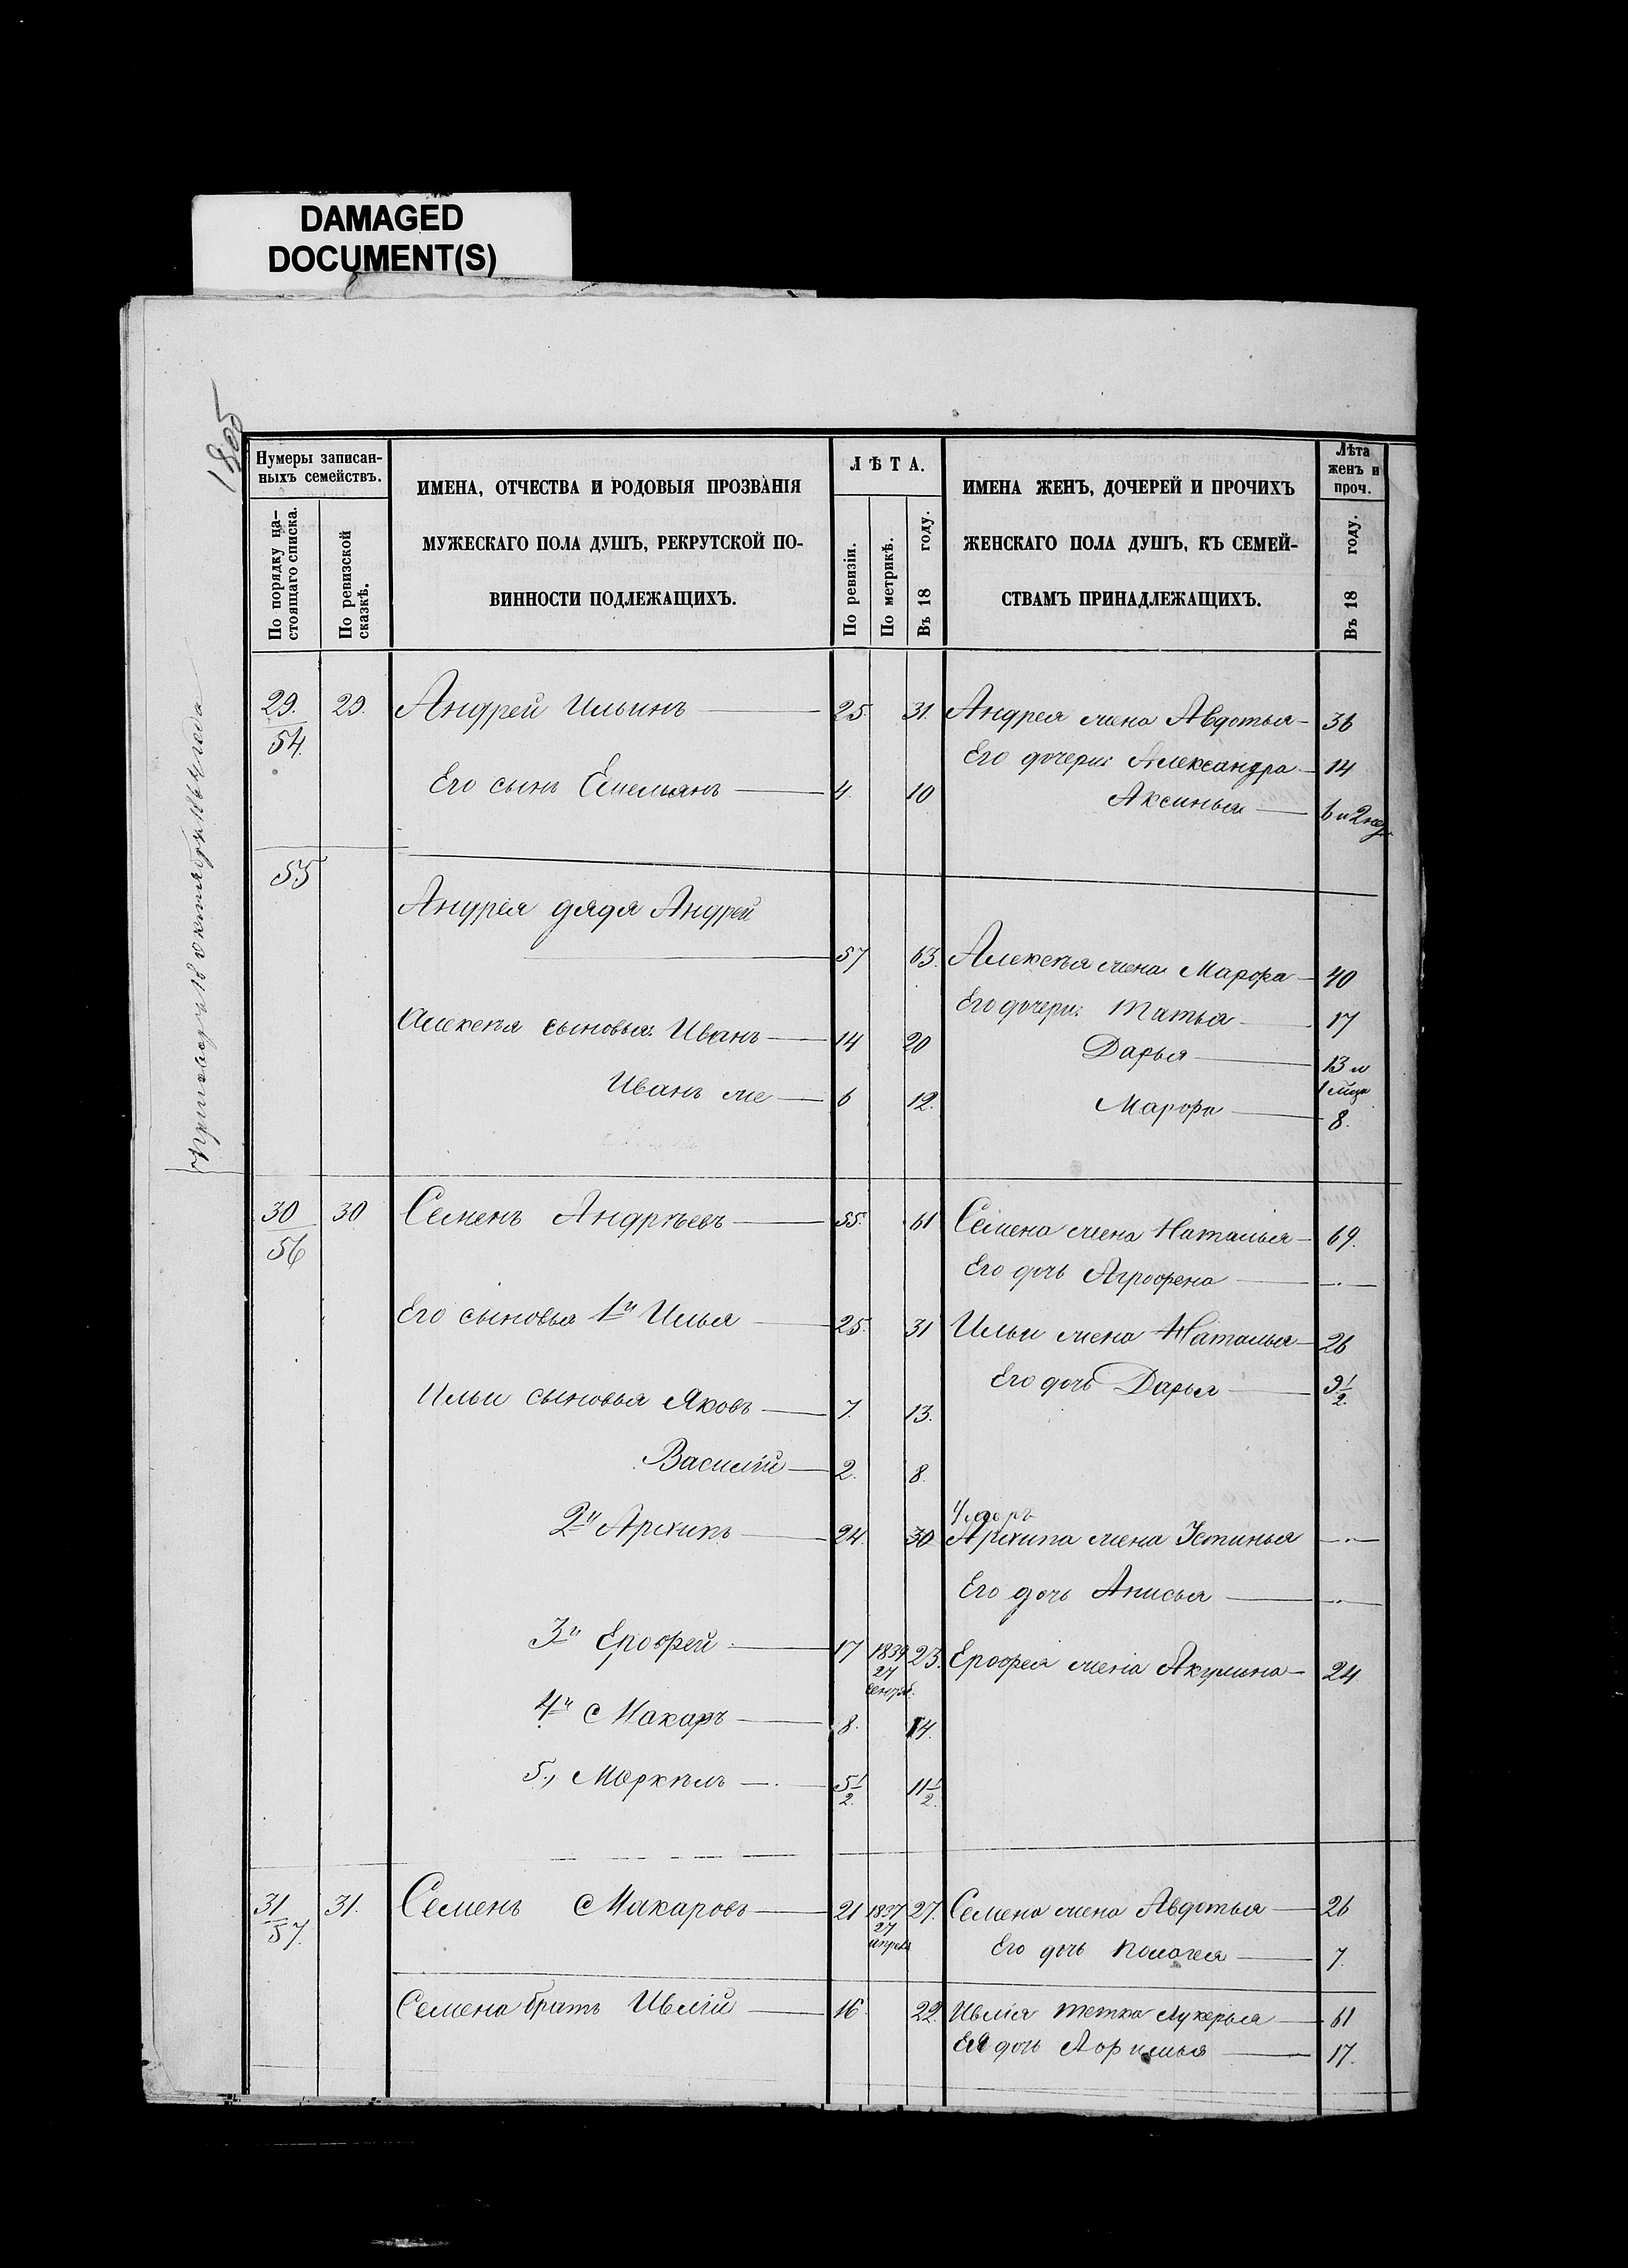 DAMAGED
DOCUMENT(S)
1805
Нумеры записан-
ныхъ семействъ.
По порядку на-
стоящаго списка.
По ревизской
сказкѣ.
ИМЕНА, ОТЧЕСТВА И РОДОВЫЯ ПРОЗВАНІЯ
МУЖЕСКАГО ПОЛА ДУШЪ, РЕКРУТСКОЙ ПО-
ВИННОСТИ ПОДЛЕЖАЩИХЪ.
ЛѢТА.
По ревизіи.
По метрикѣ.
Въ 18 году.
ИМЕНА ЖЕНЪ, ДОЧЕРЕЙ И ПРОЧИХЪ
ЖЕНСКАГО ПОЛА ДУШЪ, КЪ СЕМЕЙ-
СТВАМЪ ПРИНАДЛЕЖАЩИХЪ.
Лѣта
женъ и
проч.
Въ 18 году.
29. 29. Андрей Ильинъ 25. 31. Андрея жена Авдотья 36
54.
Его дочери: Александра 14
Его сынъ Емельянъ 4. 10
Аксинья 6 и 2 нед.
55
Андрея дядя Андрей
57 63. Алексѣя жена Марфа 40
Его дочери: Татья 17
Алексѣя сыновья: Иванъ 14 20
Дарья 13 и
1 мца
Иванъ же 6 12.
Марфа 8.
30 30 Семенъ Андреѣевъ 55. 61 Семена жена Наталья 69.
56
Его дочь Аграфена
Его сыновья 1й Илья 25. 31 Ильи жена Наталья 26
Его дочь Дарья 9 1/2.
Ильи сыновья Яковъ 7. 13.
Василій 2. 8.
2й Архипъ 24. 30 Архипа жена Устинья
Его дочь Анисья
3й Ерофей 17 1839 23. Ерофея жена Акулина 24
27
сентяб.
4й Макаръ 8. 14.
5, Маркѣлъ 5 1/2. 11 1/2.
31 31. Семенъ Макаровъ 21 1837 27. Семена жена Авдотья 26
57. 27
апреля
Его дочь Палагея 7.
Семена братъ Ивлій 16 22. Ивлія тетка Лукерья 61
Ея дочь 17.